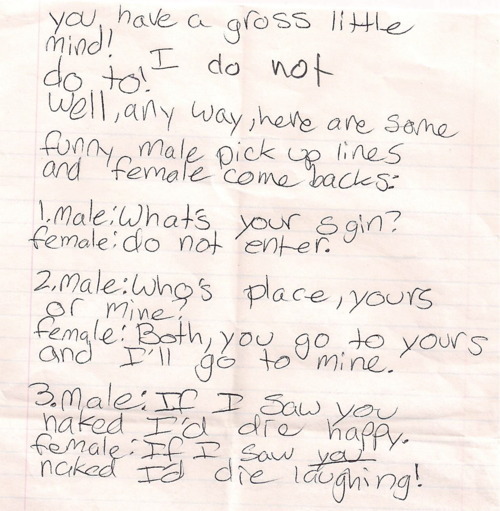 you have a gross little
mind! I do not
do to!
well, any way, here are some
funny male pick up lines
and female come backs:
1. Male: What's your sgin?
female: do not enter.
2. Male: Who's place, yours
or mine?
female: Both, you go to yours
and I'll go to mine.
3. Male: If I saw you
naked I'd die happy.
female: If I saw you
naked I'd die laughing!